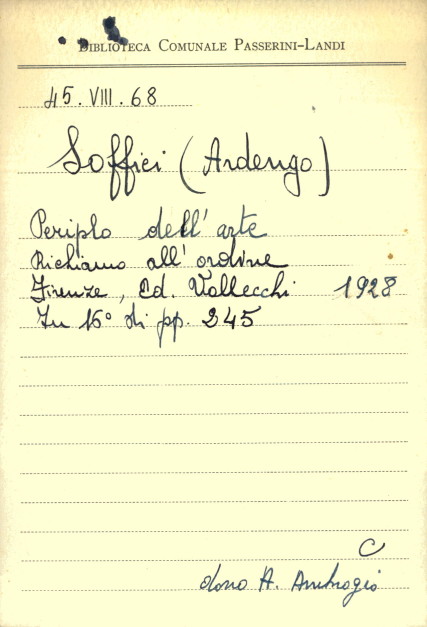 Biblioteca Comunale Passerini-Landi
45.VIII.68
Soffici (Ardengo)
Periplo dell'arte
Richiamo all'ordine
Firenze, Ed. Vallecchi 1928
In 16° di pp. 245
C
dono A. Ambrogio